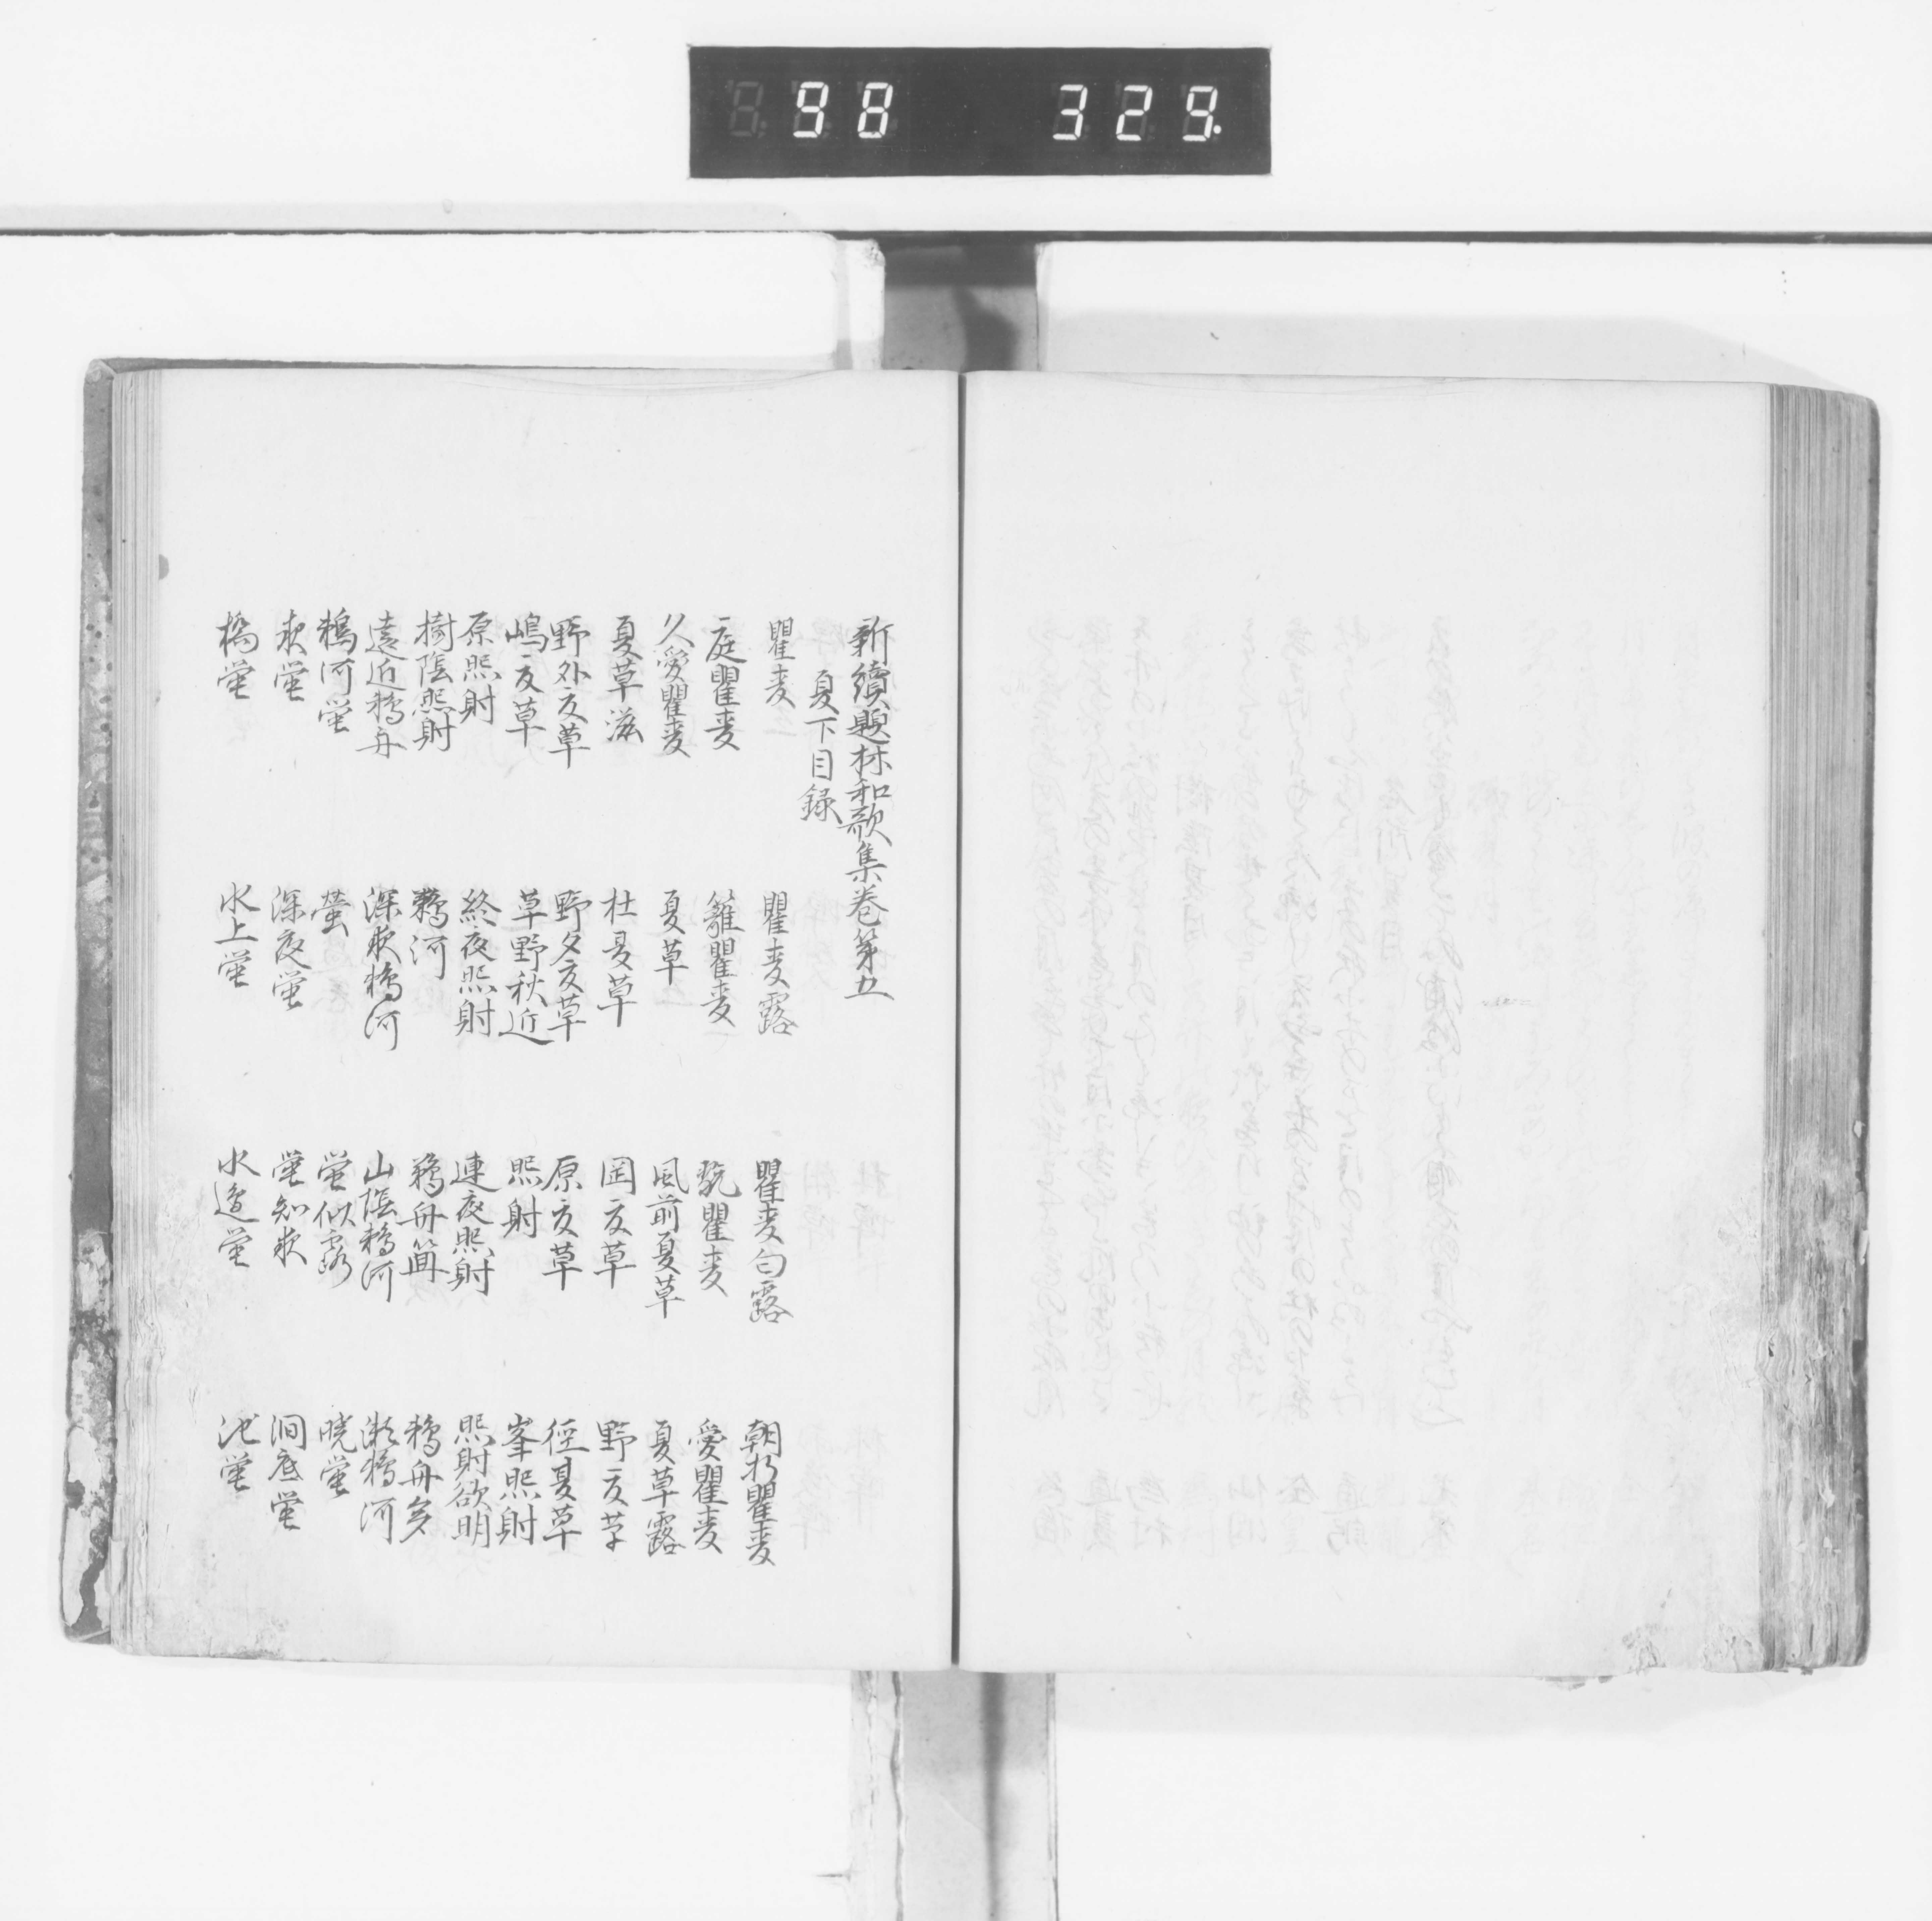 98 329.
新續題林和歌集巻第五
夏下目録
瞿麦 瞿麦露 瞿麦匂露 朝折瞿麦
庭瞿麦 籬瞿麦 翫瞿麦 愛瞿麦
久愛瞿麦 夏草 風前夏草 夏草露
夏草滋 杜夏草 岡夏草 野夏草
野外夏草 野夕夏草 原夏草 径夏草
嶋夏草 草野秋近 照射 峯照射
原照射 終夜照射 連夜照射 照射欲明
樹陰照射 鵜河 鵜舟篝 鵜舟多
遠近鵜舟 深夜鵜河 山陰鵜河 瀬鵜河
鵜河螢 螢 螢似露 暁螢
夜螢 深夜螢 螢知夜 澗底螢
橋螢 水上螢 水邊螢 池螢